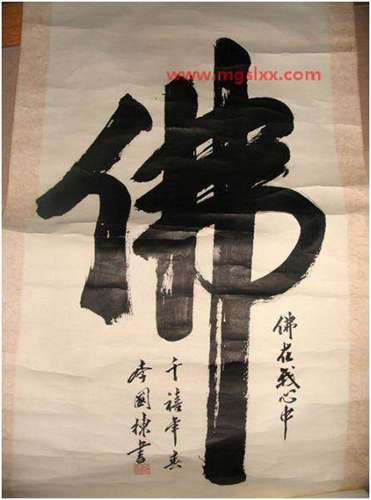 www.mgslxx.com
佛
佛在我心中
千禧年春
李國棟書